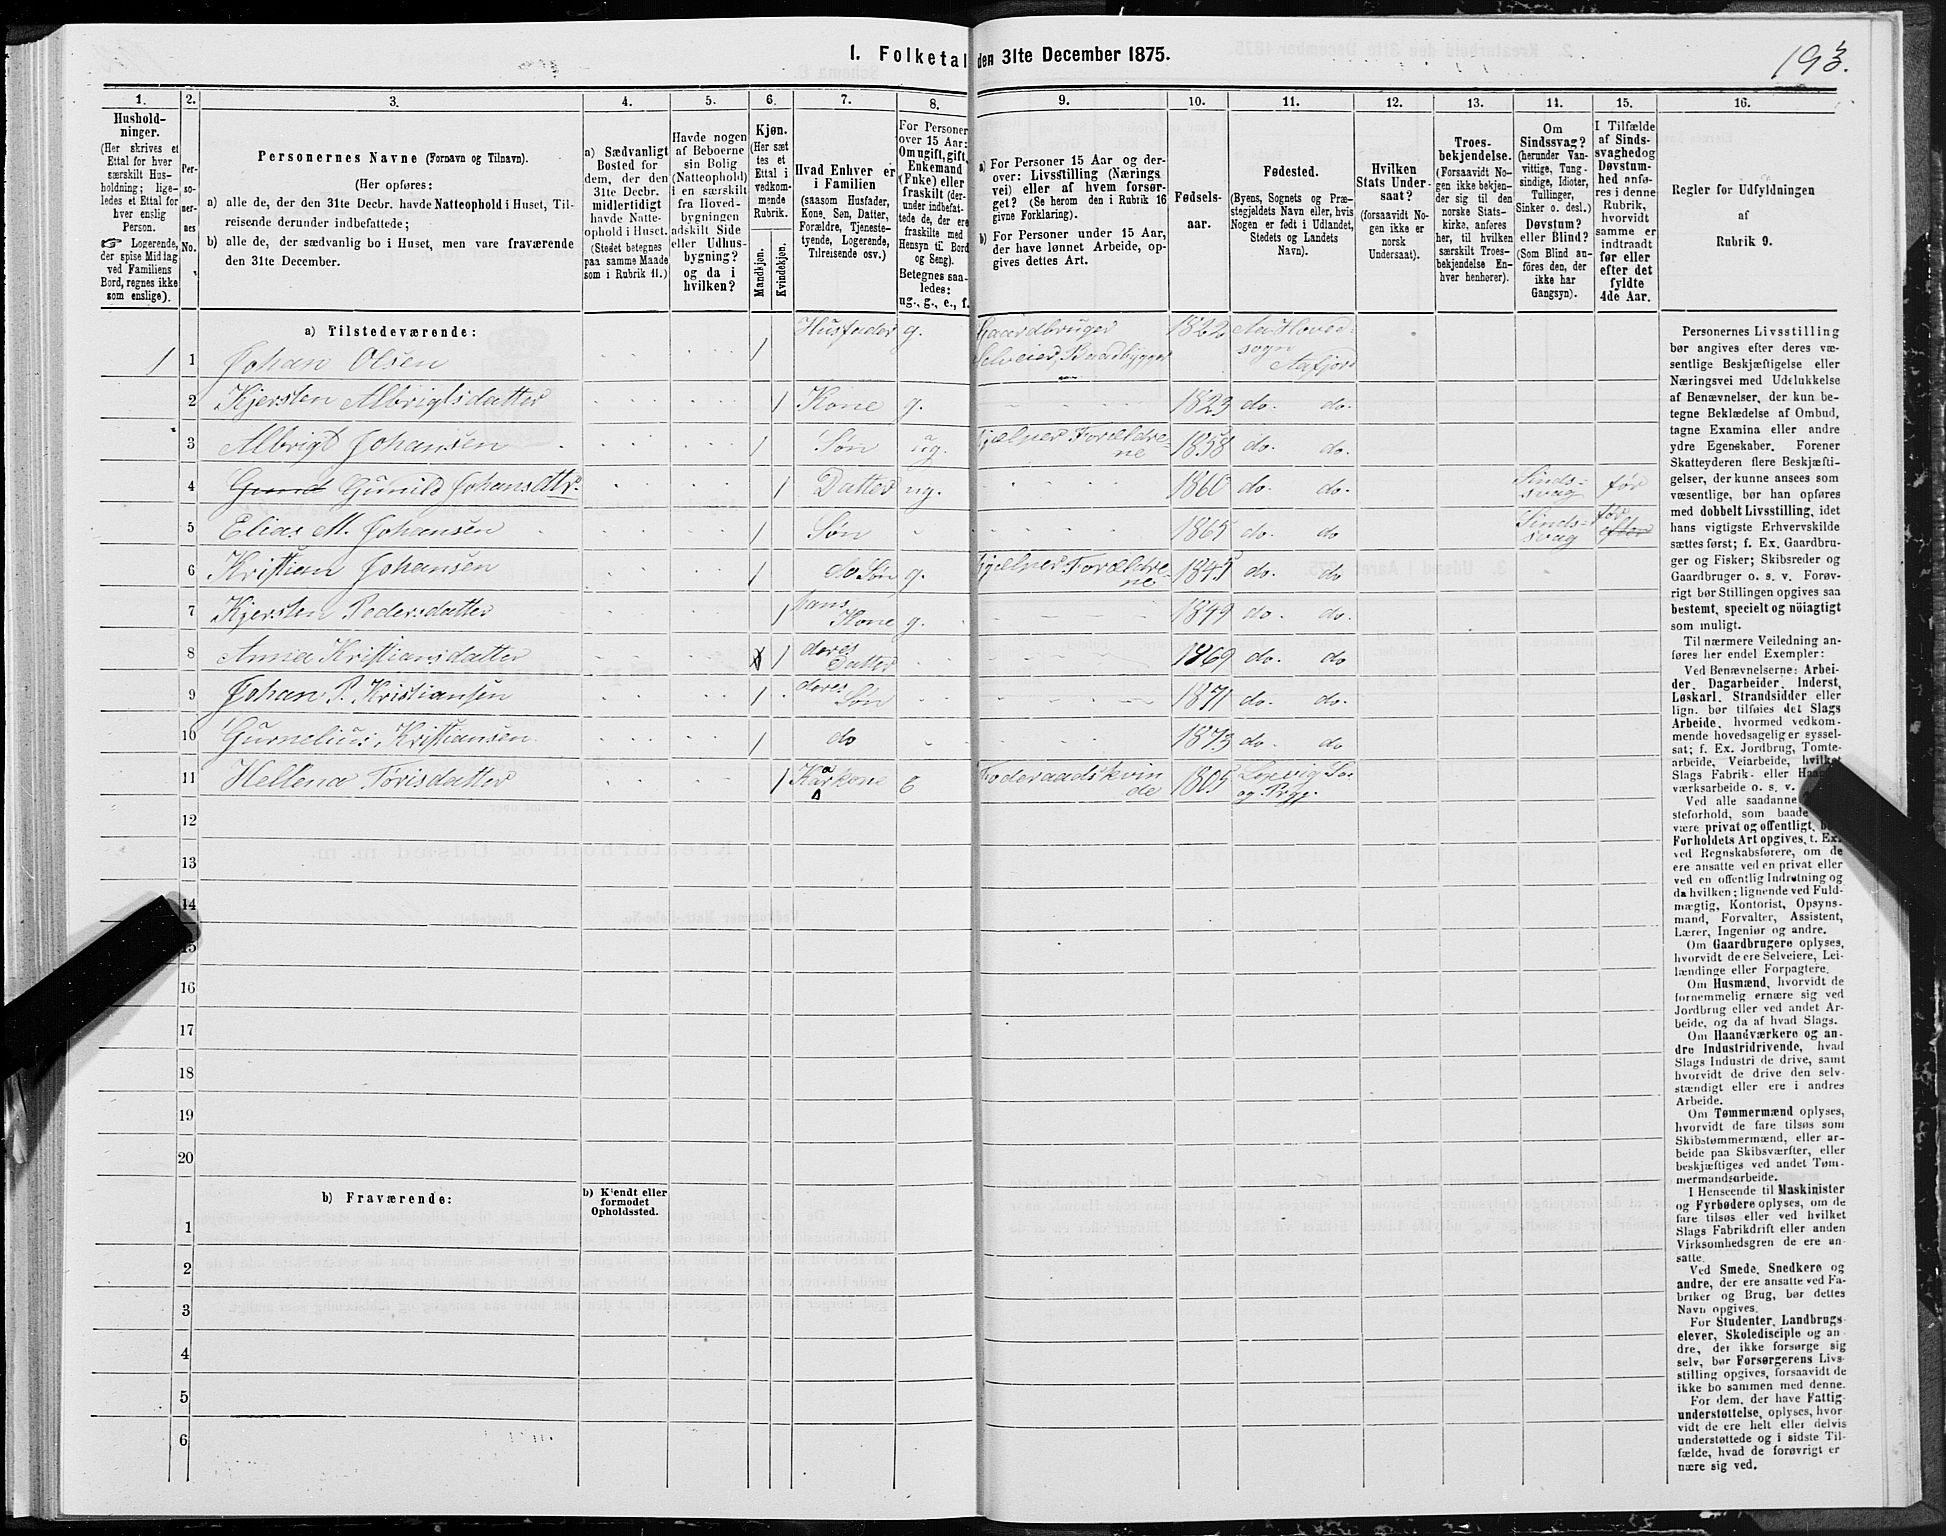 1. Folketal den 31te December 1875.
193.
1.
Hushold-
ninger.
(Her skrives et
Ettal for hver
særskilt Hus-
holdning; lige-
ledes et Ettal for
hver enslig
Person.
☞ Logerende,
der spise Middag
ved Familiens
Bord, regnes ikke
som enslige).
2.
Per-
so-
ner-
nes
No.
3.
Personernes Navne (Fornavn og Tilnavn).
(Her opføres:
a) alle de, der den 31te Decbr. havde Natteophold i Huset, Til-
reisende derunder indbefattede;
b) alle de, der sædvanlig bo i Huset, men vare fraværende
den 31te December.
4.
a) Sædvanligt
Bosted for
dem, der den
31te Decbr.
midlertidigt
havde Natte-
ophold i Huset.
(Stedet betegnes
paa samme Maade
som i Rubrik 11.)
5.
Havde nogen
af Beboerne
sin Bolig
(Natteophold)
i en særskilt
fra Hoved-
bygningen
adskilt Side
eller Udhus-
bygning?
og da i
hvilken?
6.
Kjøn.
(Her sæt
tes et
Ettal i
vedkom-
mende
Rubrik.
Mandkjøn.
Kvindekjøn.
7.
Hvad Enhver er
i Familien
(saasom Husfader,
Kone, Søn, Datter,
Forældre, Tjeneste-
tyende, Logerende,
Tilreisende osv.)
8.
For Personer
over 15 Aar:
Om ugift, gift,
Enkemand
(Enke) eller
fraskilt (der-
under indbefat-
tede de, der ere
fraskilte med
Hensyn til Bord
og Seng).
Betegnes saa-
ledes:
ug., g., e., f.
9.
a) For Personer 15 Aar og der-
over: Livsstilling (Nærings
vei) eller af hvem forsør-
get? (Se herom den i Rubrik 16
givne Forklaring).
b) For Personer under 15 Aar,
der have lønnet Arbeide, op-
gives dettes Art.
10.
Fødsels-
aar.
11.
Fødested.
(Byens, Sognets og Præ-
stegjeldets Navn eller, hvis
Nogen er født i Udlandet,
Stedets og Landets
Navn).
12.
Hvilken
Stats Under-
saat?
(forsaavidt No-
gen ikke er
norsk
Undersaat).
13.
Troes-
bekjendelse.
(Forsaavidt No-
gen ikke bekjen-
der sig til den
norske Stats-
kirke, anføres
her, til hvilken
særskilt Troes-
bekjendelse En-
hver henhører).
14.
Om
Sindssvag?
(herunder Van-
vittige, Tung-
sindige, Idioter,
Tullinger,
Sinker o. desl.)
Døvstum?
eller Blind?
(Som Blind an-
føres den, der
ikke har
Gangsyn).
15.
I Tilfælde
af Sinds-
svaghed og
Døvstum-
hed anfø-
res i denne
Rubrik,
hvorvidt
samme er
indtraadt
før eller
efter det
fyldte
4de Aar.
16.
Regler for Udfyldningen
af
Rubrik 9.
a) Tilstedeværende:
1 1 Johan Olsen 1 Husfader g. Gaardbruger Selveier, Baadbygger 1822 Aa Hoved-
sogn
Aafjord
2 Kjersten Albrigtsdatter 1 Kone g. 1823 do. do.
3 Albrigt Johansen 1 Søn ug. hjælper Forældre-
ne 1858 do. do.
4 Gunild Johansdttr. 1 Datter ug. 1860 do. do. Sinds-
svag før
5 Elias M. Johansen 1 Søn 1865 do. do Sinds-
svag før efter
6 Kristian Johansen 1 do Søn g. hjælper Forældre-
ne 1845 do. do
7 Kjersten Pedersdatter 1 hans
Kone g. 1849 do. do.
8 Anna Kristiansdatter 1 deres
Datter 1869 do. do
9 Johan P. Kristiansen 1 deres
Søn 1871 do. do.
10 Gurnelius Kristiansen 1 do 1873 do. do
11 Hellena Torisdatter 1 Kårkone e Foderaadskvin
de 1805
og
12
13
14
15
16
17
18
19
20
b) Fraværende:
b) Kjendt eller
formodet
Opholdssted.
1
2
3
4
5
6
Personernes Livsstilling
bør angives efter deres væ-
sentlige Beskjæftigelse eller
Næringsvei med Udelukkelse
af Benævnelser, der kun be-
tegne Beklædelse af Ombud,
tagne Examina eller andre
ydre Egenskaber. Forener
Skatteyderen flere Beskjæfti-
gelser, der kunne ansees som
væsentlige, bør han opføres
med dobbelt Livsstilling, idet
hans vigtigste Erhvervskilde
sættes først; f. Ex. Gaardbru-
ger og Fisker; Skibsreder og
Gaardbruger o. s. v. Forøv-
rigt bør Stillingen opgives saa
bestemt, specielt og nöiagtigt
som muligt.
Til nærmere Veiledning an-
føres her endel Exempler:
Ved Benævnelserne: Arbei-
der, Dagarbeider, Inderst,
Løskarl, Strandsidder eller
lign. bør tilføies det Slags
Arbeide, hvormed vedkom-
mende hovedsagelig er syssel-
sat; f. Ex. Jordbrug, Tomte-
arbeide, Veiarbeide, hvilket
Slags Fabrik- eller
værksarbeide o. s. v.
Ved alle saadanne
steforhold, som baade
være privat og offentligt,
Forholdets Art opgives, t. Ex.
ved Regnskabsførere, om de
ere ansatte ved en privat eller
ved en offentlig Indretning og
da hvilken; lignende ved Fuld-
mægtig, Kontorist, Opsyns-
mand, Forvalter, Assistent,
Lærer, Ingeniør og andre.
Om Gaardbrugere oplyses,
hvorvidt de ere Selveiere, Lei-
lændinge eller Forpagtere.
Om Husmænd, hvorvidt de
fornemmelig ernære sig ved
Jordbrug eller ved andet Ar-
beide, og da af hvad Slags.
Om Haandværkere og an-
dre Industridrivende, hvad
Slags Industri de drive, samt
hvorvidt de drive den selv-
stændigt eller ere i andres
Arbeide.
Om Tømmermænd oplyses,
hvorvidt de fare tilsøs som
Skibstømmermænd, eller ar-
beide paa Skibsværfter, eller
beskjæftiges ved andet Tøm-
mermandsarbeide.
I Henseende til Maskinister
og Fyrbødere oplyses, om de
fare tilsøs eller ved hvilket
Slags Fabrikdrift eller anden
Virksomhedsgren de ere an-
satte.
Ved Smede, Snedkere og
andre, der ere ansatte ved Fa-
briker og Brug, bør dettes
Navn opgives.
For Studenter, Landbrugs
elever, Skoledisciple og an-
dre, der ikke forsørge sig
selv, bør Forsørgerens Livs-
stilling opgives, forsaavidt de
ikke bo sammen med denne.
For dem, der have Fattig-
understøttelse, oplyses, hvor-
vidt de ere helt eller delvis
understøttede og i sidste Til-
fælde, hvad de forøvrigt er
nære sig ved.